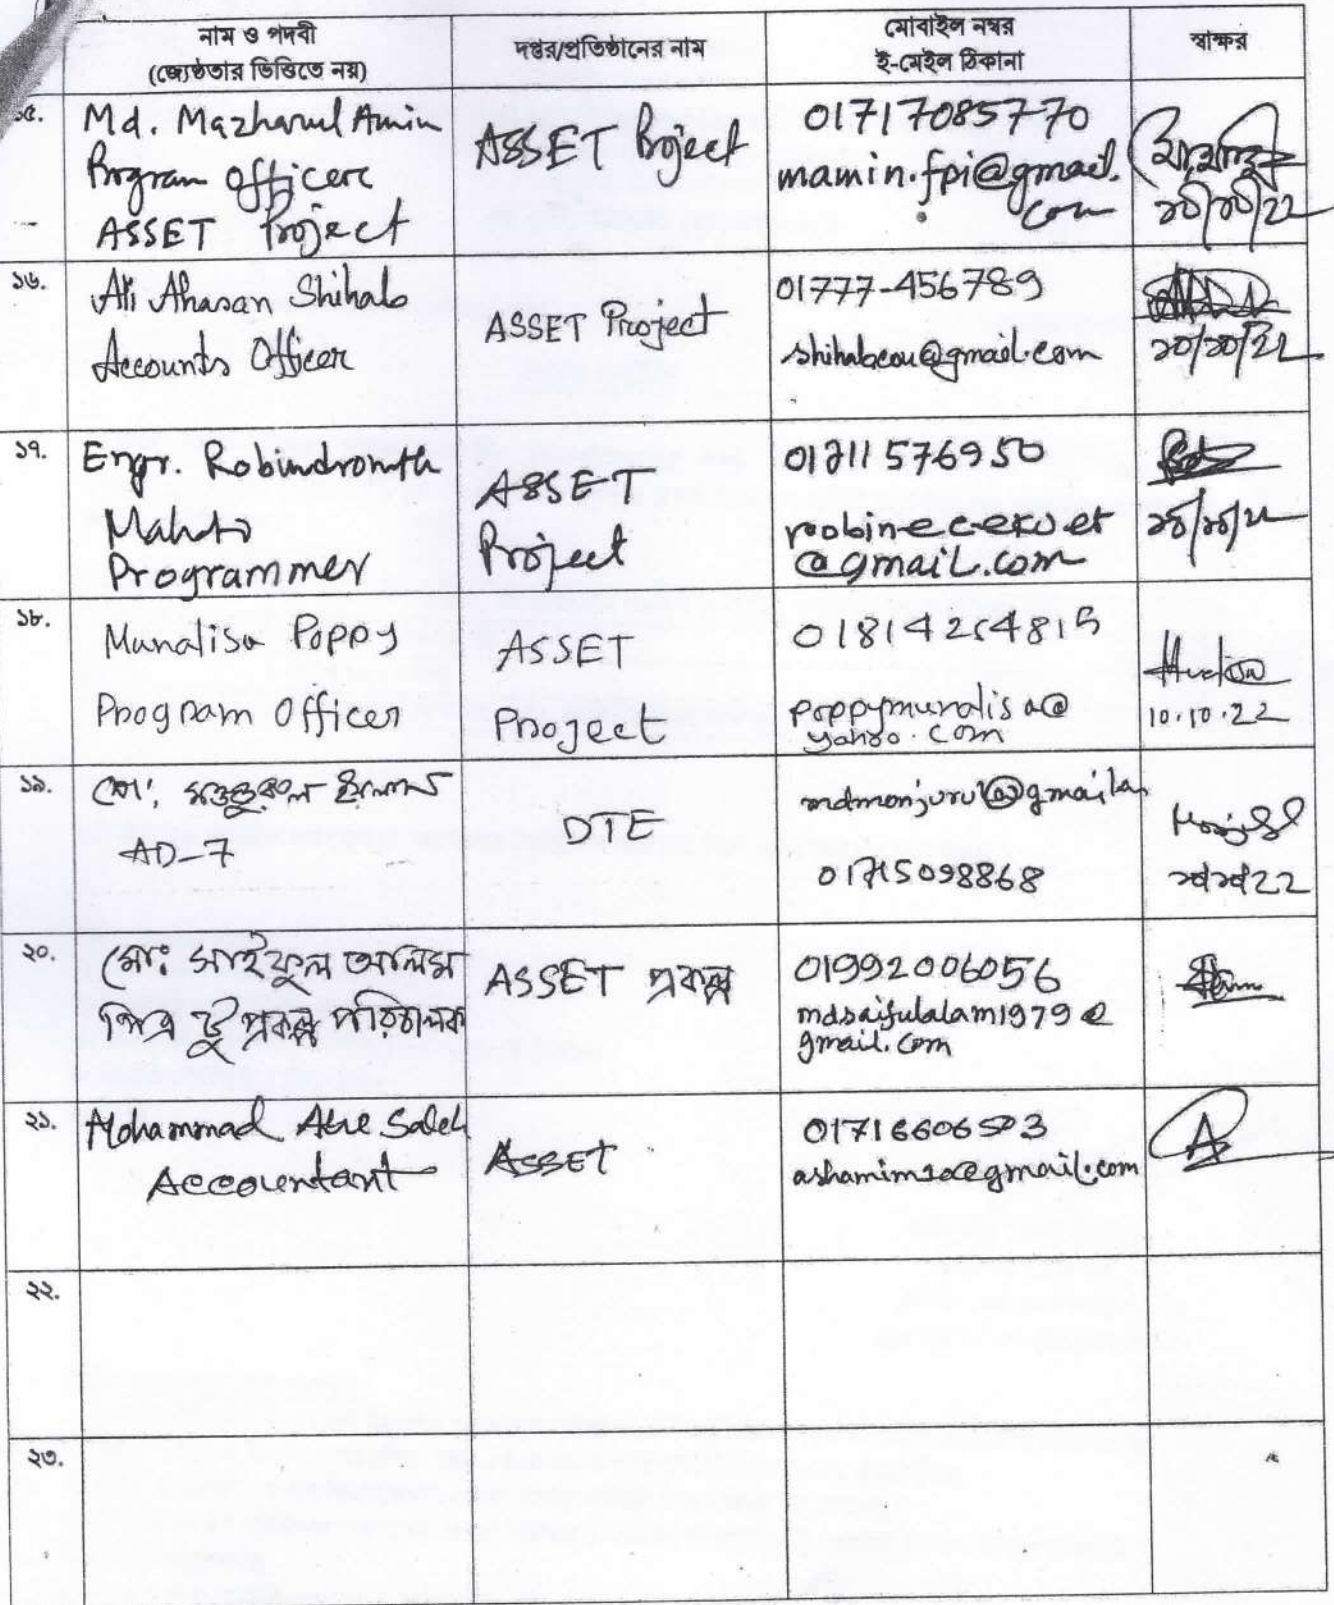 নাম ও পদবী
(জ্যেষ্ঠতার ভিত্তিতে নয়)
দপ্তর/প্রতিষ্ঠানের নাম
মোবাইল নম্বর
ই-মেইল ঠিকানা
স্বাক্ষর
১৫.
Md. Mazharul Amin
Program Officer
ASSET Project
ASSET Project
01717085770
mamin.fpi@gmail.
com
১০/১০/২২
১৬.
Ali Ahasan Shihab
Accounts Officer
ASSET Project
01777-456789
shihabcou@gmail.com
১০/১০/২২
১৭.
Engr. Robindronath
Mahato
Programmer
ASSET
Project
01711576950
@gmail.com
১০/১০/২২
১৮.
Munalisa Poppy
Program Officer
ASSET
Project
poppymunalisa@
yahoo.com
10.10.22
১৯.
মো: মঞ্জুরুল ইসলাম
AD-7
DTE
01715098868
২০.
মো: সাইফুল আলিম
প্রকল্প পরিচালক
ASSET প্রকল্প
01992006056
mdsaifulalam1979@
gmail.com
২১.
Mohammad Abu Saleh
Accountant
ASSET
২২.
২৩.